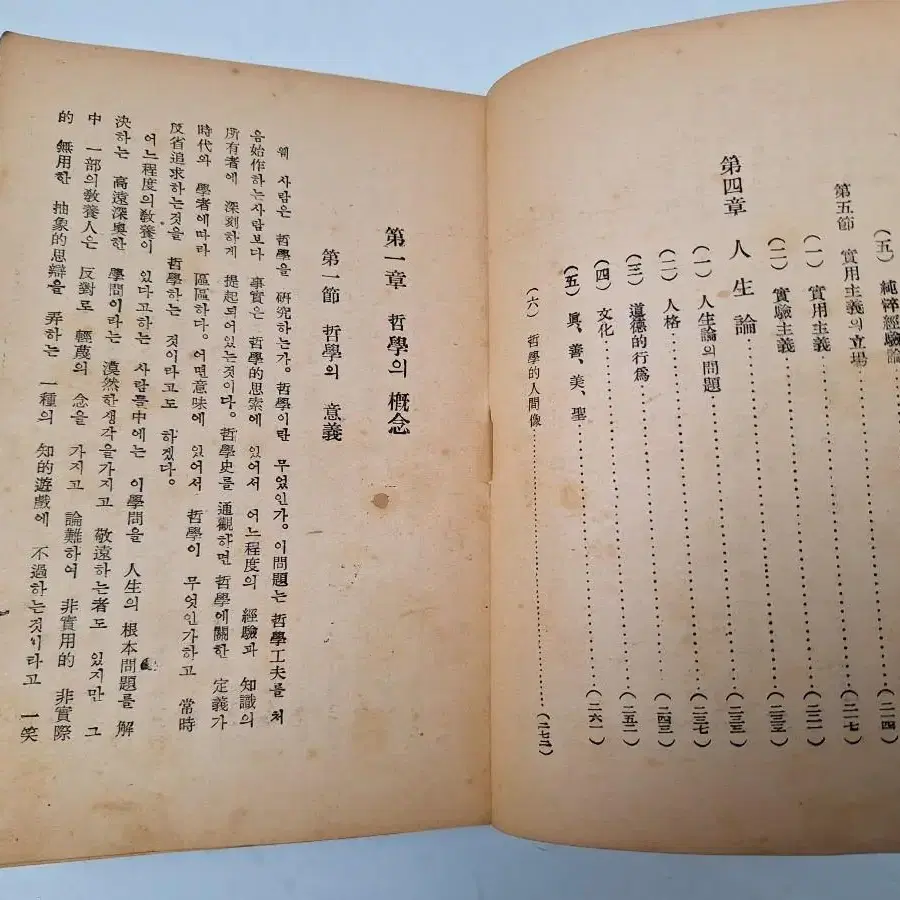 (五) 純粹經驗論……(二一四)
第五節 實用主義의立場……(二一七)
(一) 實用主義……(二二一)
(二) 實驗主義……
第四章 人生論……
(一) 人生論의問題……(二三七)
(二) 人格……(二四三)
(三) 道德的行爲……(二五二)
(四) 文化……
(五) 眞、善、美、聖……(二六一)
(六) 哲學的人間像……(二七二)
第一章 哲學의 槪念
第一節 哲學의 意義
웨 사람은 哲學을 硏究하는가。哲學이란 무었인가。이問題는 哲學工夫를 처
음始作하는사람보다 事實은 哲學的思索에 있어서 어느程度의 經驗과 知識의
所有者에 深刻하게 提起되어있는것이다。哲學史를 通觀하면 哲學에關한 定義가
時代와 學者에따라 區區하다。어떤意味에 있어서 哲學이 무엇인가하고 當時
反省追求하는것을 哲學하는 것이라고도 하겠다。
어느程度의敎養이 있다고하는 사람들中에는 이學問을 人生의 根本問題를 解
決하는 高遠深奧한 學問이라는 漠然한생각을가지고 敬遠하는者도 있지만 그
中 一部의敎養人은 反對로 輕蔑의 念을 가지고 論難하여 非實用的 非實際
的 無用한 抽象的思辯을 弄하는 一種의 知的遊戱에 不過하는것이라고 一笑